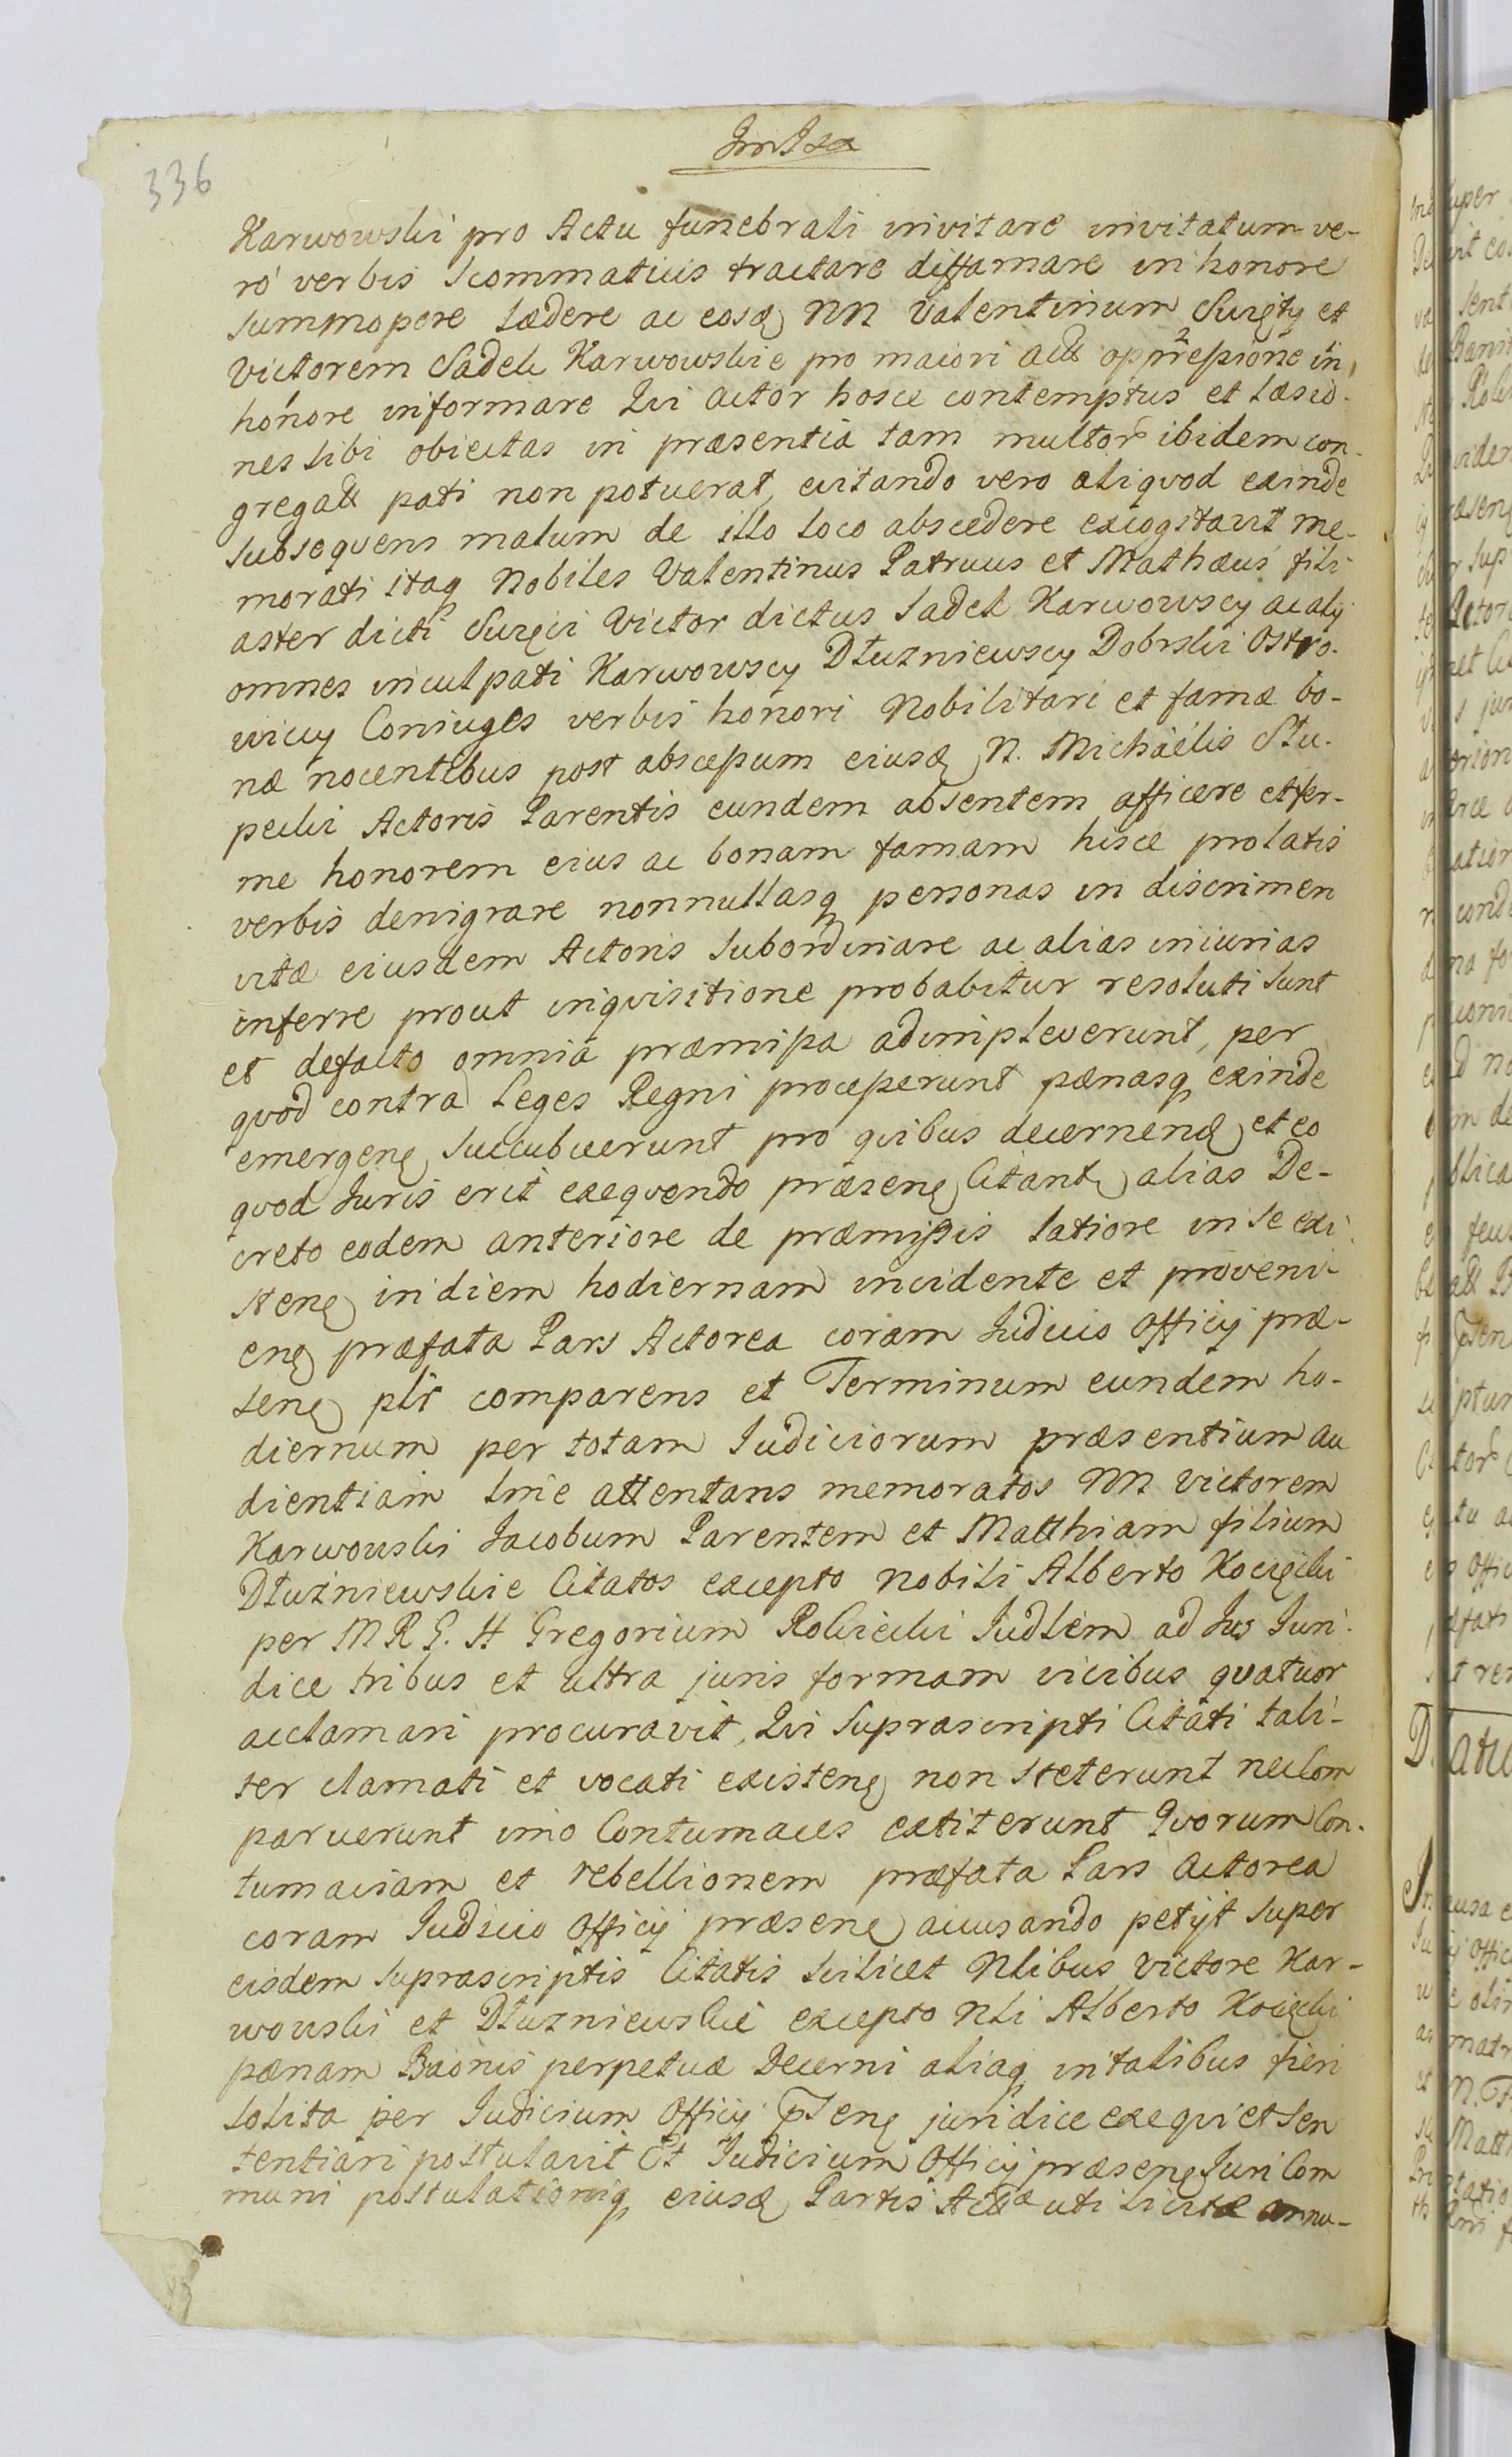 336
Karwowski pro Actu funebrali invitare invitatum ve-
ro verbis scommaticis tractare diffamare in honore
summopere lædere ac eosd NN Valentinum Suręty et
Victorem Sadek Karwowskie pro maiori oppressione in
honore informare Qui actor hosce contemptus et læsio-
nes sibi obiectas in præsentia tam multor ibidem con-
gregatt pati non potuerat, evitando vero aliqvod exinde
subseqvens malum de illo loco abscedere excogitavit me-
morati itaq Nobiles Valentinus Patruus et Mathæus fili
aster dicti Suręci Victor dictus Sadek Karwowscy ac alÿ
omnes inculpati Karwowscy Dłuzniewscy Dobrski Ostro-
wiccy Coniuges verbis honori Nobilitari et famæ bo-
næ nocentibus post abscessum eiusd N. Michaelis Stu-
pecki Actoris Parentis eundem absentem afficere et fer-
me honorem eius ac bonam famam hisce prolatis
verbis denigrare nonnullasq personas in discrimen
vitæ eiusdem Actoris subordinare ac alias iniurias
inferre prout inqvisitione probabitur resoluti sunt
et defacto omnia præmissa adimpleverunt, per
qvod contra Leges Regni processerunt pænasq exinde
emergen succubuerunt pro qvibus decernend et eo
qvod Juris erit exeqvendo præsen Citant alias De-
creto eodem anteriore de præmissis latiore in se exi-
sten in diem hodiernam incidente et proveni-
en præfata Pars Actorea coram Judicio Officÿ præ-
sen plr comparens et Terminum eundem ho-
diernum per totam Judiciorum præsentium au
dientiam lme attentans memoratos NN Victorem
Karwowski Jacobum Parentem et Matthiam filium
Dłuzniewskie Citatos excepto Nobili Alberto Kocięcki
per M R G. H Gregorium Rokicki Judlem ad Jus Juri-
dice tribus et ultra juris formam vicibus qvatuor
acclamari procuravit, Qvi Suprascripti Citati tali-
ter clamati et vocati existen non steterunt nec Com
paruerunt imo Contumaces extiterunt Qvorum Con-
tumaciam et rebellionem præfata Pars Actorea
coram Judicio Officÿ præsen accusando petÿt super
eisdem suprascriptis Citatis scilicet Nlibus Victore Kar-
wowski et Dłuzniewskie excepto Nli Alberto Kocięcki
pænam Baonis perpetuæ Decerni aliaq in talibus fieri
solita per Judicium Officÿ psen juridice exeqvi et sen
tentiari postulavit Et Judicium Officÿ præsen Juri Com
muni postulationiq eiusd Partis Acttæ uti licitæ annu-